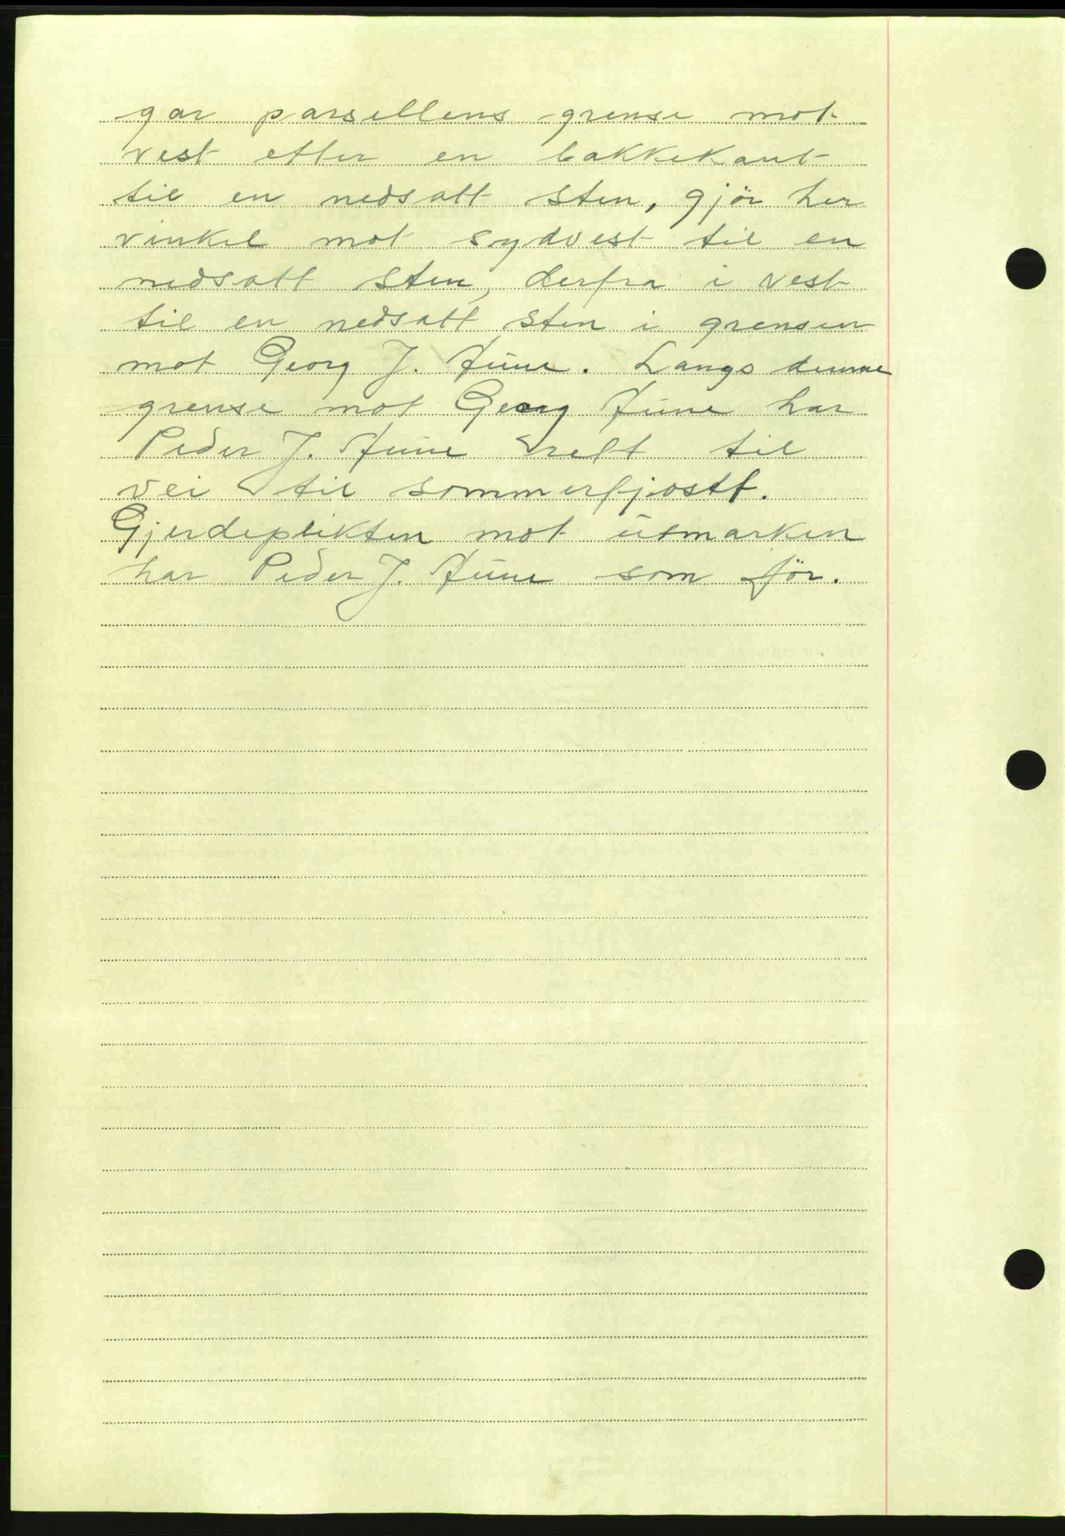 går parsellens grense mot
vest etter en bakkekant
til en nedsatt sten, gjør her
vinkel mot sydvest til en
nedsatt sten, derfra i vest
til en nedsatt sten i grensen
mot Georg J. Aune. Langs denne
grense mot Georg Aune har
Peder J. Aune rett til
vei til sommerfjøstf.
Gjerdeplikten mot utmarken
har Peder J. Aune som før.